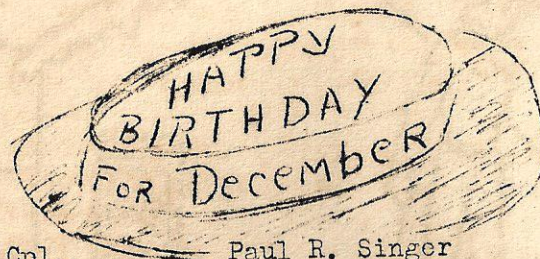 HAPPY
BIRTHDAY
FOR December
Cpl Paul R. Singer